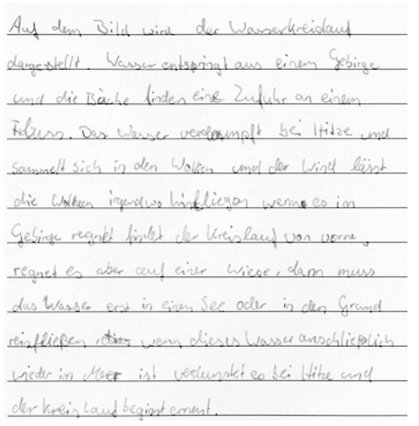 Auf dem Bild wird der Wasserkreislauf
dargestellt. Wasser entspringt aus einem Gebirge
und die Bäche finden eine Zufuhr an einem
Das Wasser verdampft bei Hitze und
sammelt sich in den Wolken und der Wind lässt
die Wolken irgendwo hinfliegen wenn es im
Gebirge regnet findet der Kreislauf von vorne,
regnet es aber auf einer Wiese, dann muss
das Wasser erst in einen See oder in den Grund
reinfließen wenn dieses Wasser anschließlich
wieder im Meer ist verdunstet es bei Hitze und
der Kreislauf beginnt erneut.